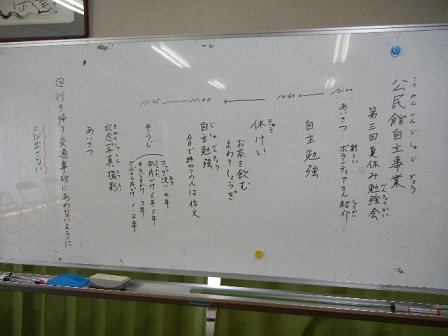 公民館自主事業
第三回夏休み勉強会
10:00
あいさつ ボランティアさん紹介
自主勉強
10:50
休けい
お茶を飲む
まわりしょうぎ
11:00
自主勉強
今日で終わりの人は作文
11:25
そうじ
コップ洗い 4年
机片づけ 6年 5年
3年
1、2年
記念写真撮影
あいさつ
@行き帰り 交通事故にあわないように
とび出さない